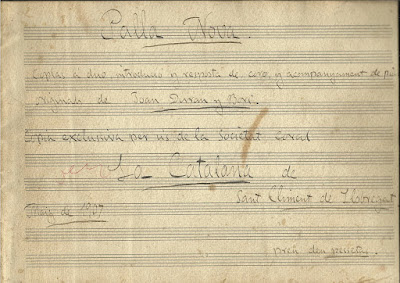 Palla Nova.
Coplas a duo, introducció y resposta de coro, y acompanyament de pia
originals de Joan Durran y Boré.
Copia exclusiva per us de la Societat Coral
La Catalana de
Sant Climent de Llobregat
Maig de 1907
preu deu pessetas.